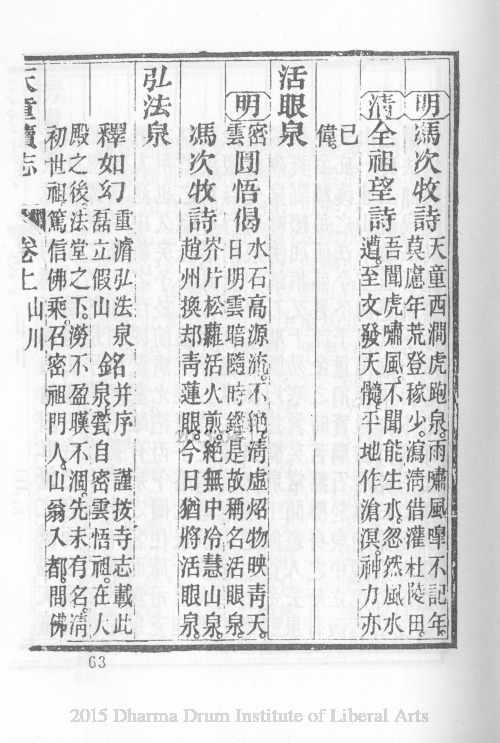 明 馮次牧詩 天童西澗虎跑泉。雨嘯風嘷不記年。
莫慮年荒登稼少。瀉清借灌杜陵田。
清 全祖望詩 吾聞虎嘯風。不聞能生水。忽然風水
遒。至文發天髓。平地作滄溟。神力亦
已
偉。
活眼泉
明 密雲圓悟偈 水石高源流不絕。清虛炤物映青天。
日明雲暗隨時鑑。是故稱名活眼泉。
馮次牧詩 芥片松蘿活火煎。絕無中冷慧山泉。
趙州換却青蓮眼。今日猶將活眼泉。
弘法泉
釋如幻 重濬弘法泉磊立假山 銘 并序 謹按寺志載此
泉甃自密雲悟祖。在大
殿之後。法堂之下。澇不盈暵不涸。先未有名。清
初世祖篤信佛乘。石密祖門人。山翁入都。問佛
天童續志 卷上 山川
63
2015 Dharma Drum Institute of Liberal Arts